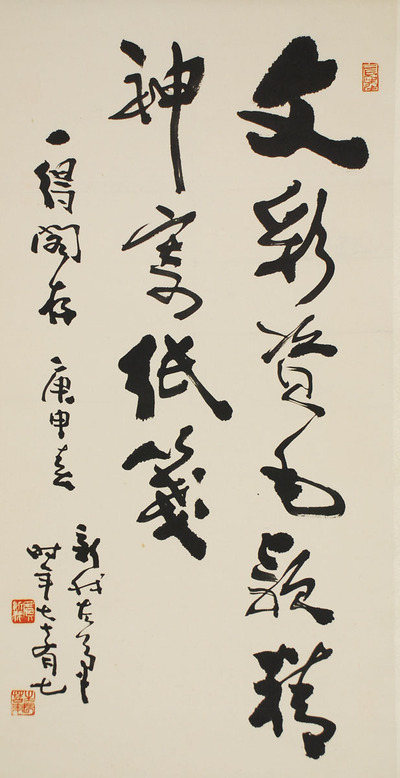 文彩資毛穎精
神寄紙箋
一得閣存 庚申春
新我左筆
时年七十有七